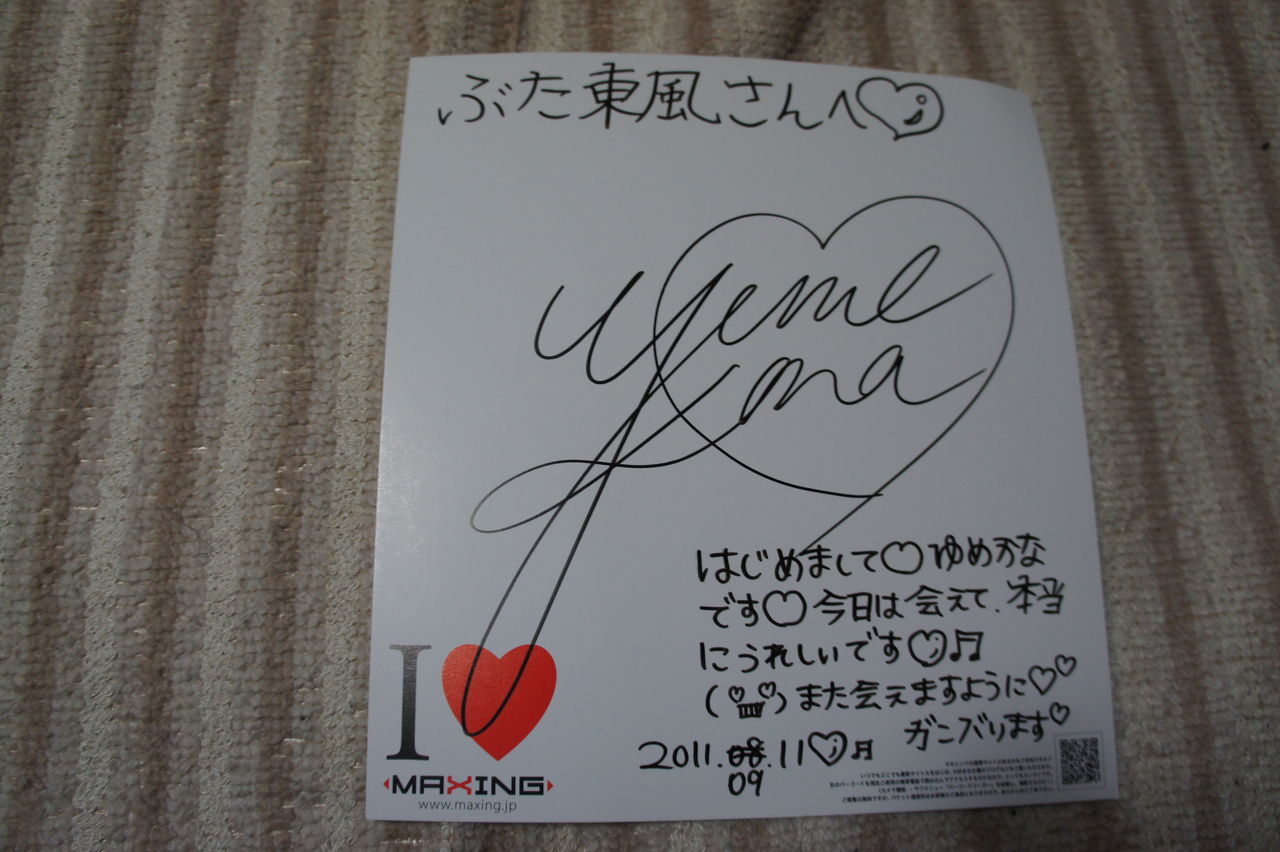 ぶた東風さんへ♡
yume
kana
はじめまして♡ゆめかな
です♡今日は会えて、本当
にうれしいです♡♫
また会えますように♡♡
ガンバります♡
2011.08.11♡♫
09
I
MAXING
www.maxing.jp